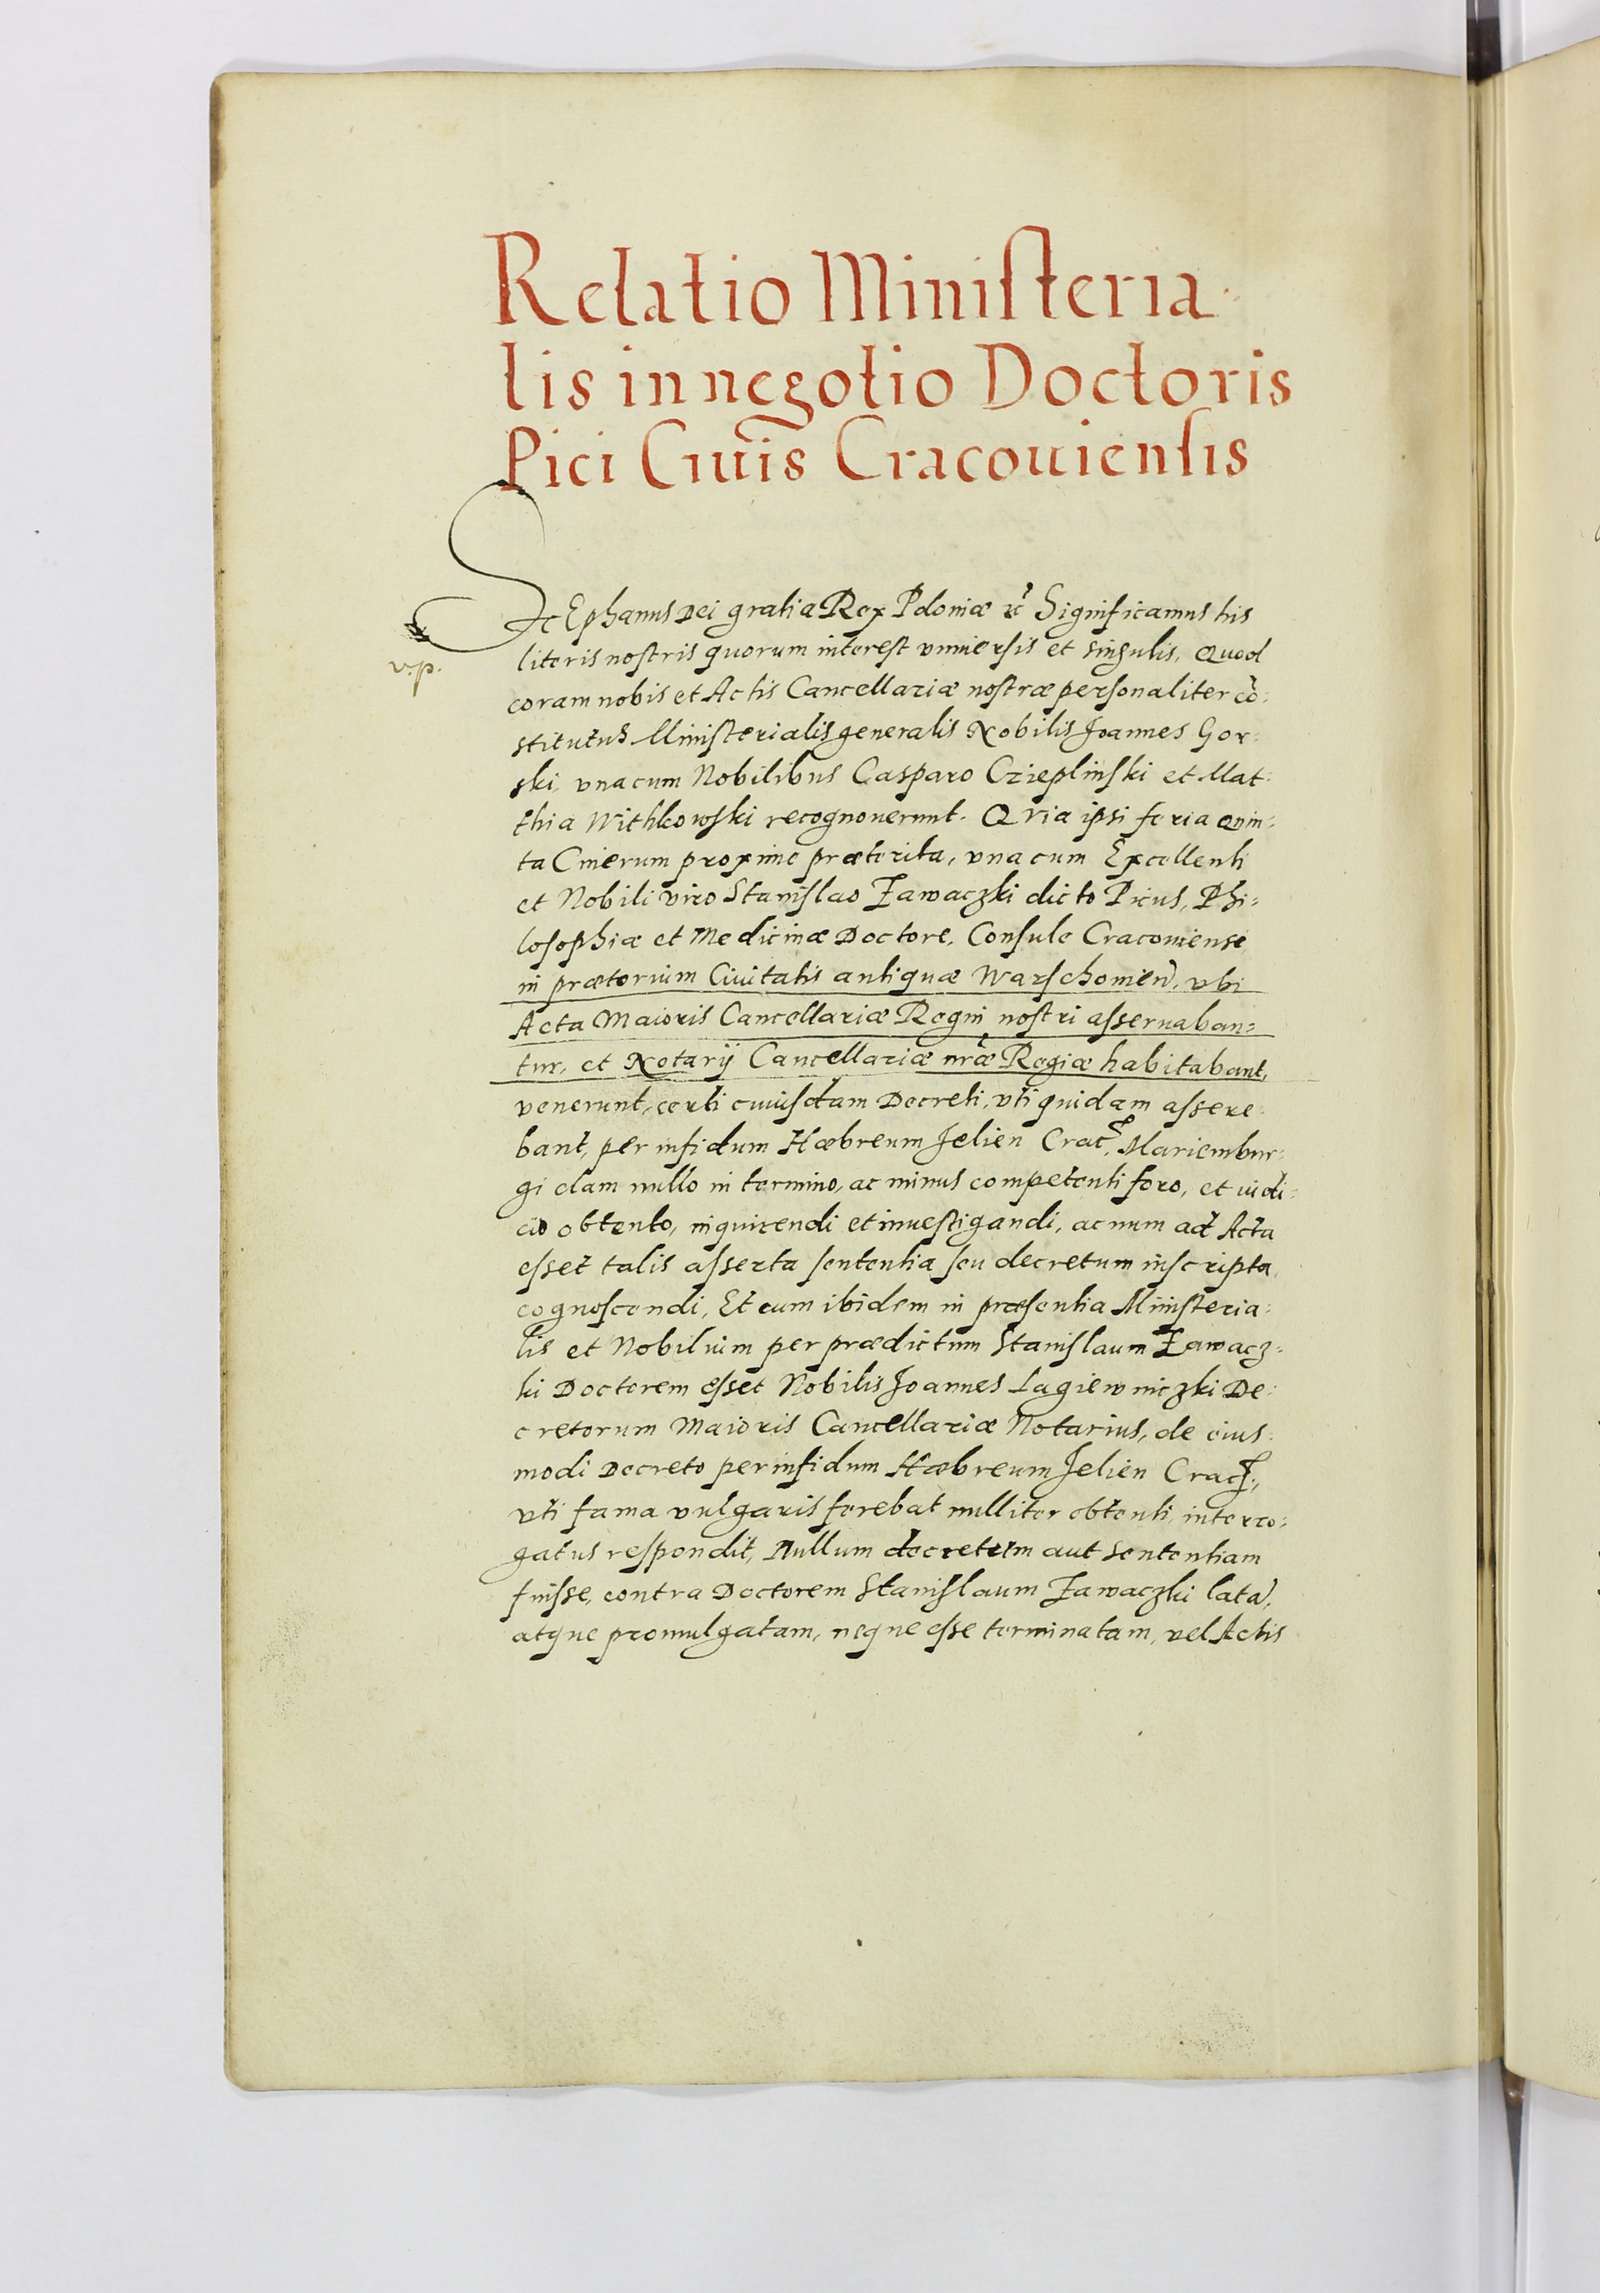 Relatio Ministeria-
lis in negotio Doctoris
Pici Ciuis Cracouiensis
StEphanus Dei gratia Rex Poloniæ etc̃ Significamus his
literis nostris quorum interest vniuersis et singulis, Quod
v.p.
coram nobis et Actis Cancellariæ nostræ personaliter cō-
stitutus Ministerialis generalis Nobilis Joannes Gor-
ski, vna cum Nobilibus Casparo Czieplinski et Mat-
thia Withkowski recognouerunt. Qvia ipsi feria qvin-
ta Cinerum proxime præterita, vna cum Excellenti
et Nobili viro Stanislao Zawaczki dicto Picus, Phi-
losophiæ et Medicinæ Doctore, Consule Cracouiense
in prætorium Ciuitatis antiquæ Warschouień, vbi
Acta Maioris Cancellariæ Regni nostri asseruaban-
tur, et Notarij Cancellariæ nr̃æ Regiæ habitabant,
venerunt, certi cuiusdam Decreti, vti quidam assere-
bant, per infidum Hæbreum Jelien Crac, Mariembur-
gi clam nullo in termino, ac minus competenti foro, et iudi-
cio obtento, inquirendi et inuestigandi, ac num ad Acta
esset talis asserta sententia seu decretum inscripta,
cognoscendi, Et cum ibidem in præsentia Ministeria-
lis et Nobilium per prædictum Stanislaum Zawacz-
ki Doctorem esset Nobilis Joannes Lagiewniczki De-
cretorum Maioris Cancellariæ Notarius, de eius-
modi Decreto per infidum Hæbreum Jelien Crac,
vti fama vulgaris ferebat nulliter obtenti, interro-
gatus respondit, Nullum decretum aut sententiam
fuisse, contra Doctorem Stanislaum Zawaczki latã,
atque promulgatam, neque esse terminatam, vel Actis